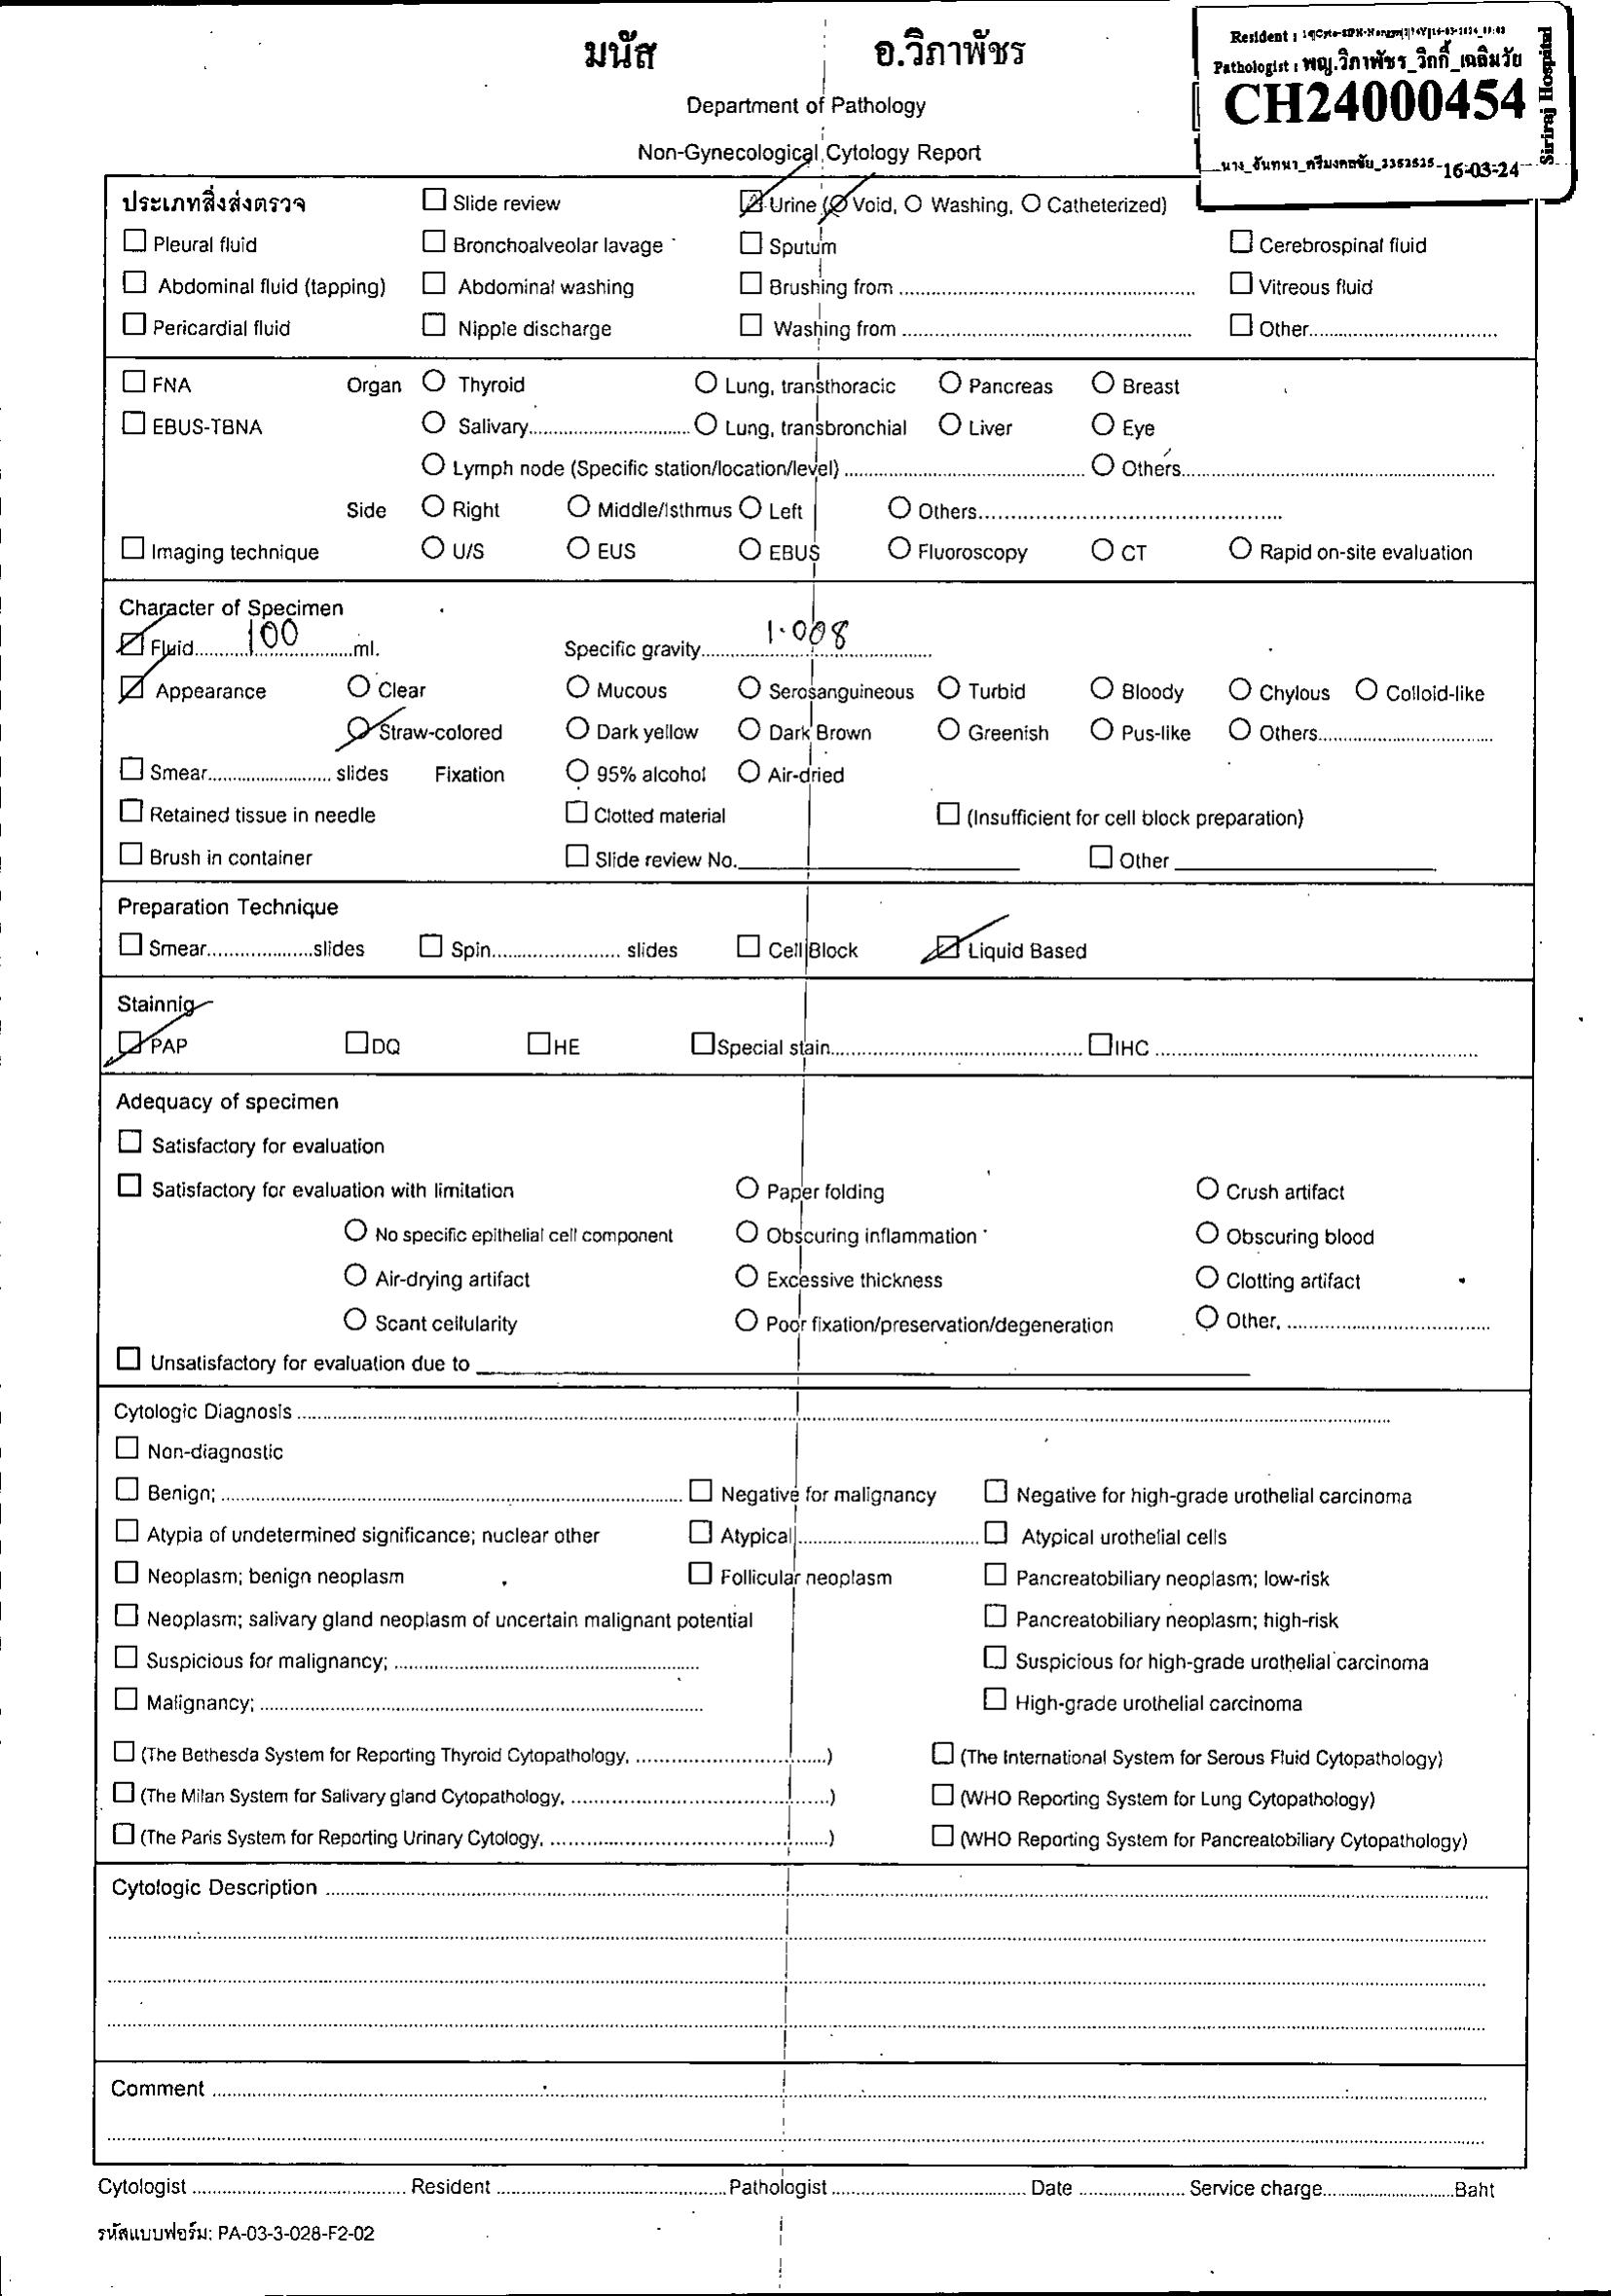 มนัส อ.วิภาพัชร
Resident :
Pathologist : พญ.วิภาพัชร_วิกกี้_เฉลิมวัย
CH24000454
16-03-24
Siriraj Hospital
Department of Pathology
Non-Gynecological Cytology Report
ประเภทสิ่งส่งตรวจ Slide review Urine ( Void, Washing, Catheterized)
Pleural fluid Bronchoalveolar lavage Sputum Cerebrospinal fluid
Abdominal fluid (tapping) Abdominal washing Brushing from Vitreous fluid
Pericardial fluid Nipple discharge Washing from Other
FNA Organ Thyroid Lung, transthoracic Pancreas Breast
EBUS-TBNA Salivary Lung, transbronchial Liver Eye
Lymph node (Specific station/location/level) Others
Side Right Middle/Isthmus Left Others
Imaging technique U/S EUS EBUS Fluoroscopy CT Rapid on-site evaluation
Character of Specimen
Fluid 100 ml. Specific gravity 1.008
Appearance Clear Mucous Serosanguineous Turbid Bloody Chylous Colloid-like
Straw-colored Dark yellow Dark Brown Greenish Pus-like Others
Smear slides Fixation 95% alcohol Air-dried
Retained tissue in needle Clotted material (Insufficient for cell block preparation)
Brush in container Slide review No. Other
Preparation Technique
Smear slides Spin slides Cell Block Liquid Based
Stainnig
PAP DQ HE Special stain IHC
Adequacy of specimen
Satisfactory for evaluation
Satisfactory for evaluation with limitation Paper folding Crush artifact
No specific epithelial cell component Obscuring inflammation Obscuring blood
Air-drying artifact Excessive thickness Clotting artifact
Scant cellularity Poor fixation/preservation/degeneration Other,
Unsatisfactory for evaluation due to
Cytologic Diagnosis
Non-diagnostic
Benign; Negative for malignancy Negative for high-grade urothelial carcinoma
Atypia of undetermined significance; nuclear other Atypical Atypical urothelial cells
Neoplasm; benign neoplasm Follicular neoplasm Pancreatobiliary neoplasm; low-risk
Neoplasm; salivary gland neoplasm of uncertain malignant potential Pancreatobiliary neoplasm; high-risk
Suspicious for malignancy; Suspicious for high-grade urothelial carcinoma
Malignancy; High-grade urothelial carcinoma
(The Bethesda System for Reporting Thyroid Cytopathology, ) (The International System for Serous Fluid Cytopathology)
(The Milan System for Salivary gland Cytopathology, ) (WHO Reporting System for Lung Cytopathology)
(The Paris System for Reporting Urinary Cytology, ) (WHO Reporting System for Pancreatobiliary Cytopathology)
Cytologic Description
Comment
Cytologist Resident Pathologist Date Service charge Baht
รหัสแบบฟอร์ม: PA-03-3-028-F2-02